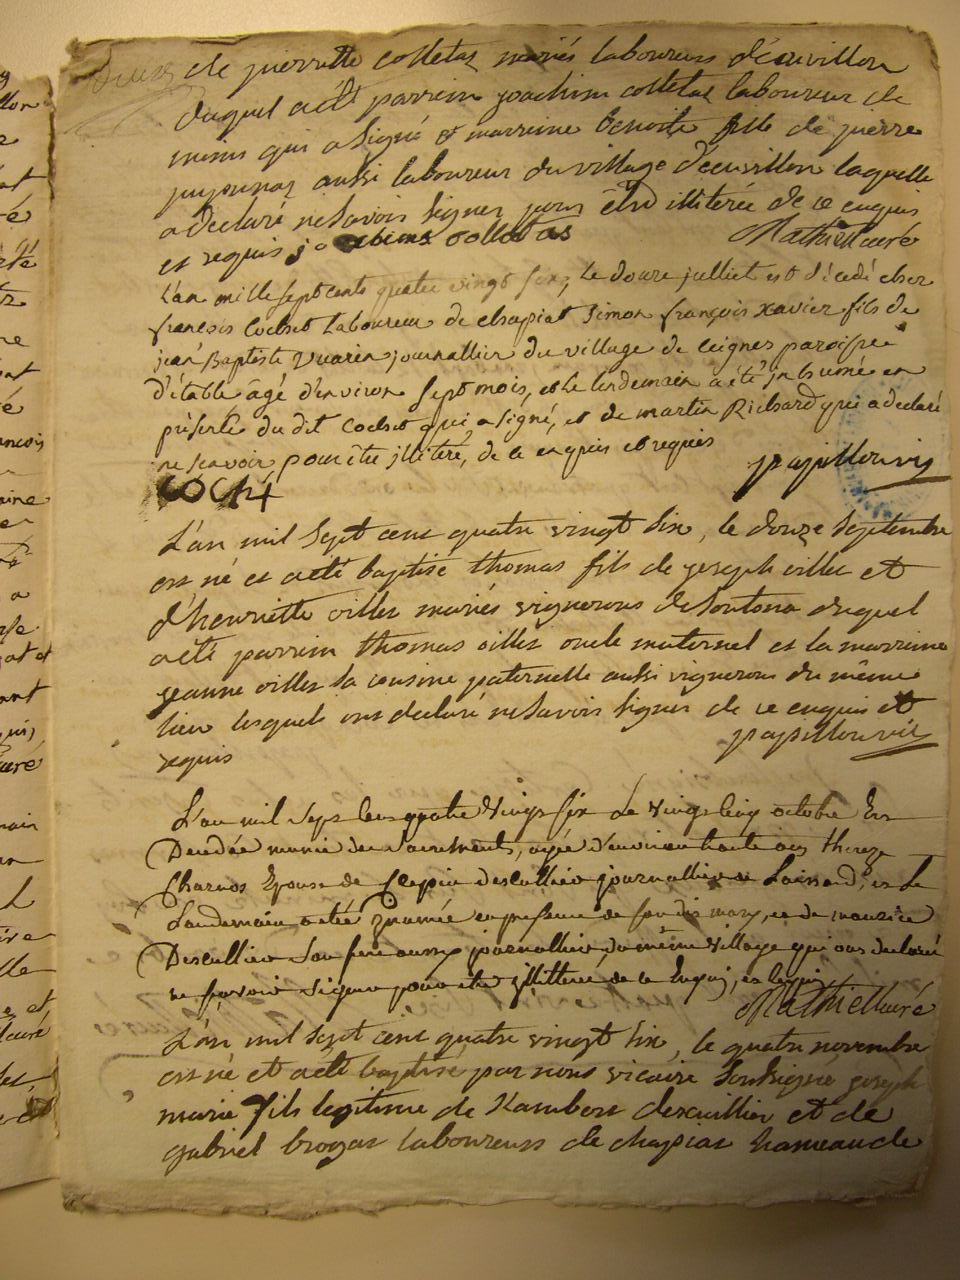 de pierrette colletaz mariés laboureurs d'écuvillon
duquel a été parrein joachim colletaz laboureur de
qui a signé et marreine benoite fille de pierre
aussi laboureur du village d'écuvillon laquelle
a declaré ne savoir signer pour être illiterée de ce enquis
et requis
Mathieu curé
L'an mille sept cents quatre vingt six, le douze julliet est décedé chez
françois Cochet laboureur de chapiat Simon françois Xavier fils de
jean Baptiste Vuarin journallier du village de Ceignes paroisse
d'étable âgé d'environ sept mois, et le lendemain a été inhumé en
présence du dit Cochet qui a signé, et de martin Richard qui a declaré
ne scavoir, pour être jllitéré, de ce enquis et requis
papillon vic
COCHE
L'an mil sept cent quatre vingt six, le douze septembre
est né et a été baptisé thomas fils de joseph villes et
d'henriette villes mariés vignerons de duquel
a été parrein thomas villes oncle maternel et la marreine
jeanne villes sa cousine paternelle aussi vignerons du même
lieu lesquels ont declaré ne savoir signer de ce enquis et
requis
papillon vic
L'an mil sept cens quatre vingt six Le vingt cinq octobre Est
Decedée munie des sacrements, agée d'environ trente ans
Epouse de journallier de et Le
Landemain a été en presence de son dit mary, et de maurice
son frere aussy journallier du même village qui ont declaré
ne sçavoir signer pour être jllitteré de ce
Mathieu curé
L'an mil sept cent quatre vingt six, le quatre novembre
est né et a été baptisé par nous vicaire soussigné joseph
marie fils legitime de et de
gabriel brogat laboureurs de chapiat hameau de